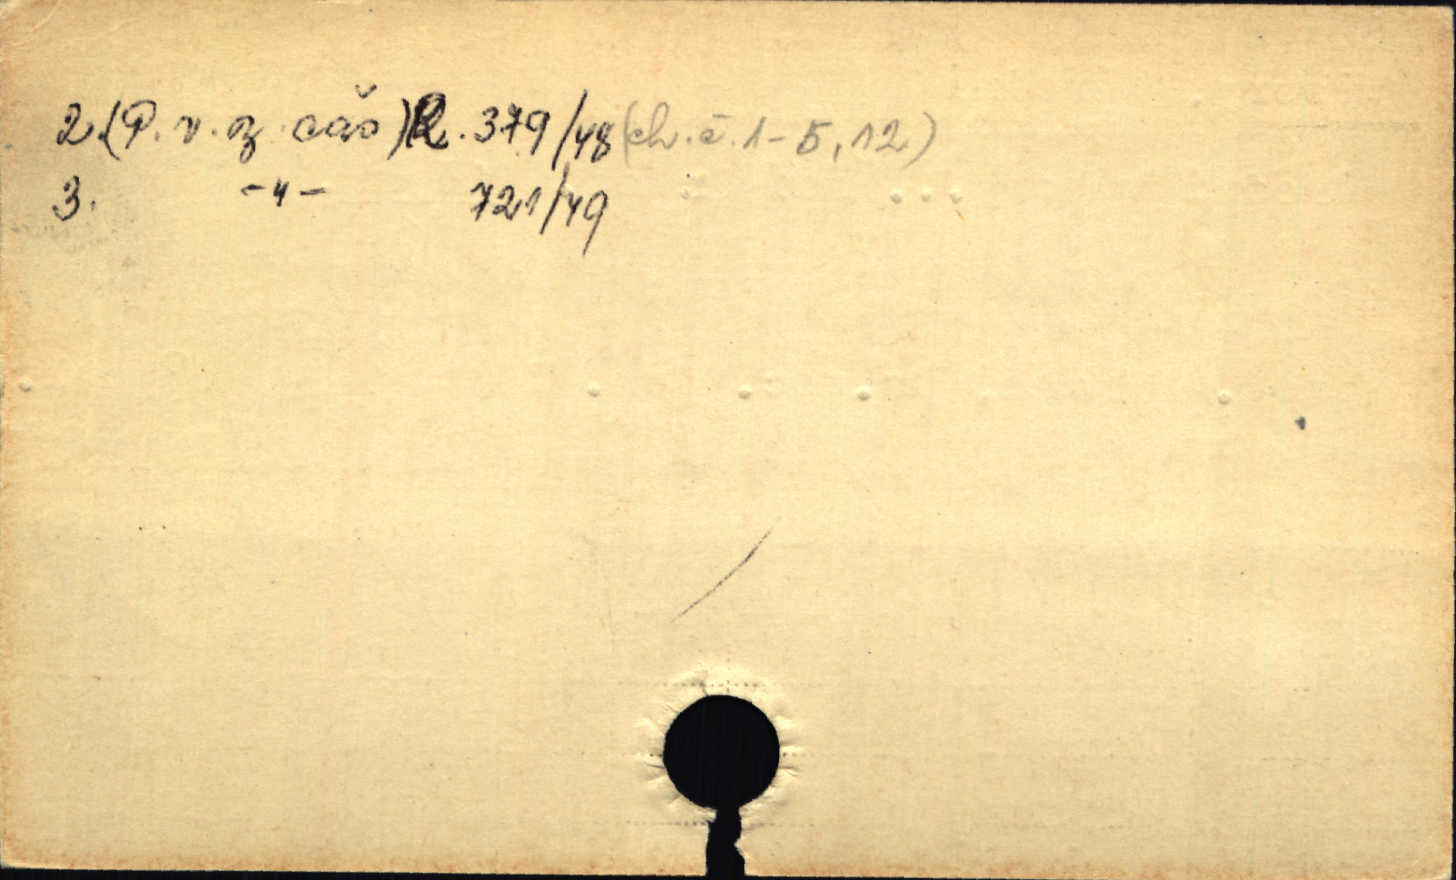 2.(P. v. z. čas) R. 379/48 (ch. č. 1-5, 12)
3. -"- 721/49